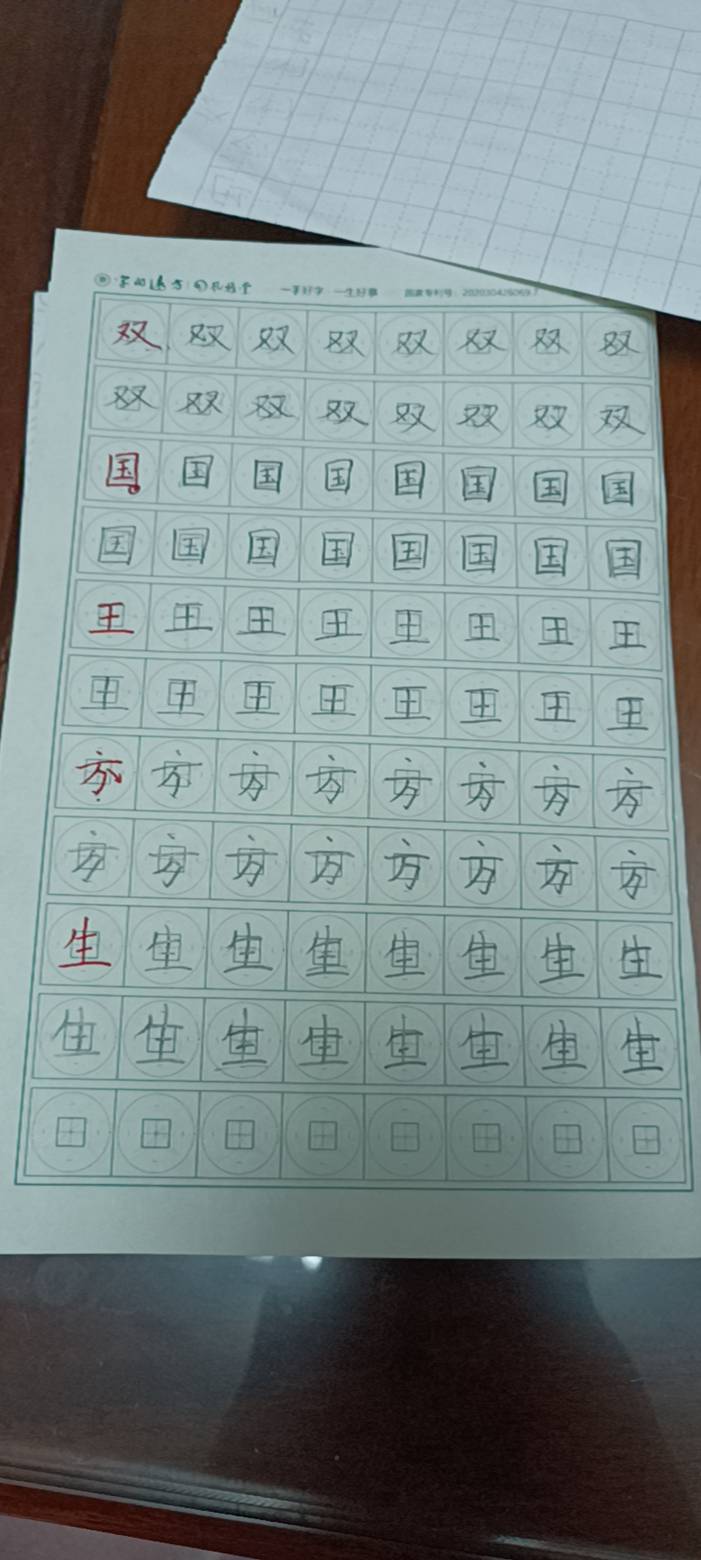 字的远方 一手好字 一生好事 国家专利号：202030426069.7
双 双 双 双 双 双 双 双
双 双 双 双 双 双 双 双
国 国 国 国 国 国 国 国
国 国 国 国 国 国 国 国
王 王 王 王 王 王 王 王
王 王 王 王 王 王 王 王
方 方 方 方 方 方 方 方
方 方 方 方 方 方 方 方
生 生 生 生 生 生 生 生
生 生 生 生 生 生 生 生